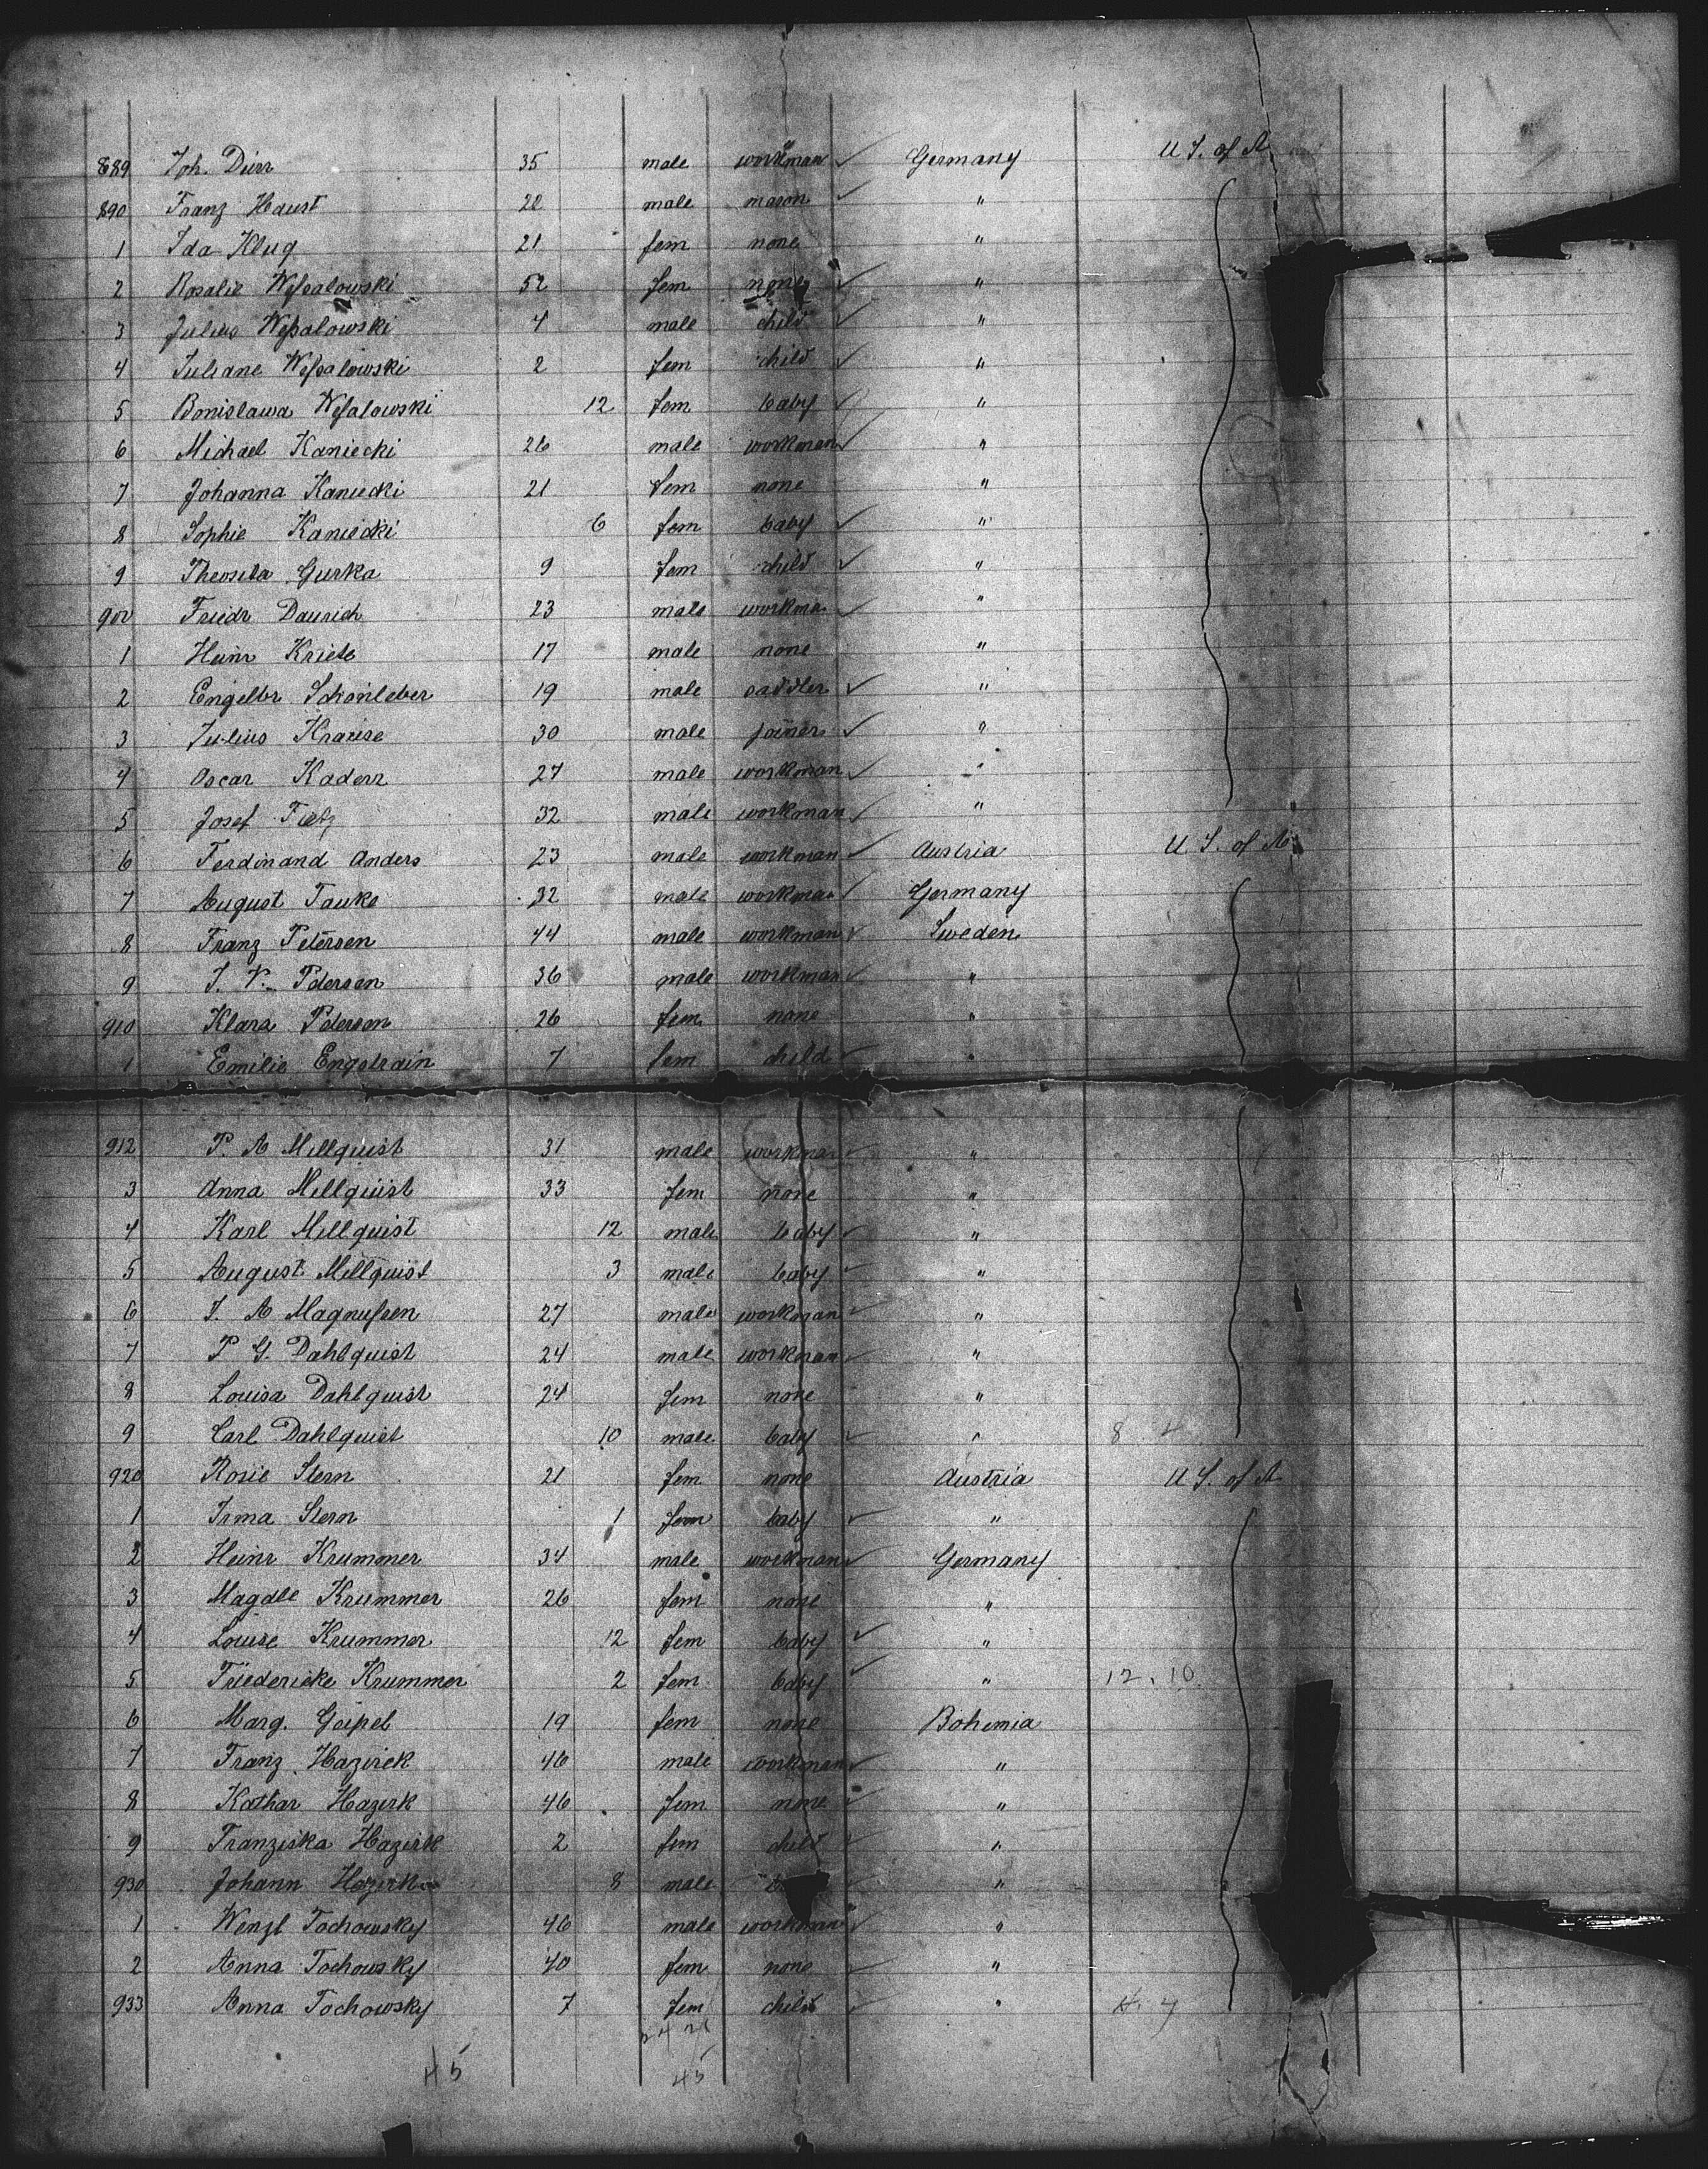 889 Joh. Dürr 35 male workman ✓ Germany U. S. of A
890 Franz Haust 22 male mason ✓ "
1 Ida Klug 21 fem none "
2 Rosalie Weßalowski 52 fem none ✓ "
3 Julius Weßalowski 4 male child ✓ "
4 Juliane Weßalowski 2 fem child ✓ "
5 Bonislawa Weßalowski 12 fem baby ✓ "
6 Michael Kaniecki 26 male workman ✓ "
7 Johanna Kaniecki 21 fem none "
8 Sophie Kaniecki 6 fem baby ✓ "
9 Gurka 9 fem child ✓ "
900 Friedr Daurich 23 male workma ✓ "
1 Heinr Kriete 17 male none "
2 Engelbr Schönleber 19 male saddler ✓ "
3 Julius Krause 30 male joiner ✓ "
4 Oscar Kaderr 27 male workman ✓ "
5 Josef Fietz 32 male workman ✓ "
6 Ferdinand Anders 23 male workman ✓ Austria U. S. of A
7 August Tauke 32 male workman ✓ Germany
8 Franz Petersen 44 male workman ✓ Sweden
9 Pederson 36 male workman ✓ "
910 Klara Pederson 26 fem none "
1 Emilie Engstrain 7 fem child ✓ "
912 P. A Millquist 31 male workman ✓ "
3 Anna Millquist 33 fem none "
4 Karl Millquist 12 male baby ✓ "
5 August Millquist 3 male baby ✓ "
6 J. A Magnußen 27 male workman ✓ "
7 P G. Dahlquist 24 male workman ✓ "
8 Louisa Dahlquist 24 fem none "
9 Carl Dahlquist 10 male baby ✓ " 8 4
920 Rosie Stern 21 fem none Austria U S. of A
1 Irma Stern 1 fem baby ✓ "
2 Heinr Krummer 34 male workman ✓ Germany
3 Magdle Krummer 26 fem none "
4 Louise Krummer 12 fem baby ✓ "
5 Friedericke Krummer 2 fem baby ✓ " 12. 10.
6 Marg. Geipel 19 fem none Bohemia
7 Franz Hazirek 46 male workman ✓ "
8 Kathar Hazirk 46 fem none ✓ "
9 Franziska Hazirk 2 fem child ✓ "
930 Johann Hazirk 8 male "
1 Wenzl Tochowsky 46 male workman ✓ "
2 Anna Tochowsky 40 fem none ✓ "
933 Anna Tochowsky 7 fem child ✓ "
24 21
45 45